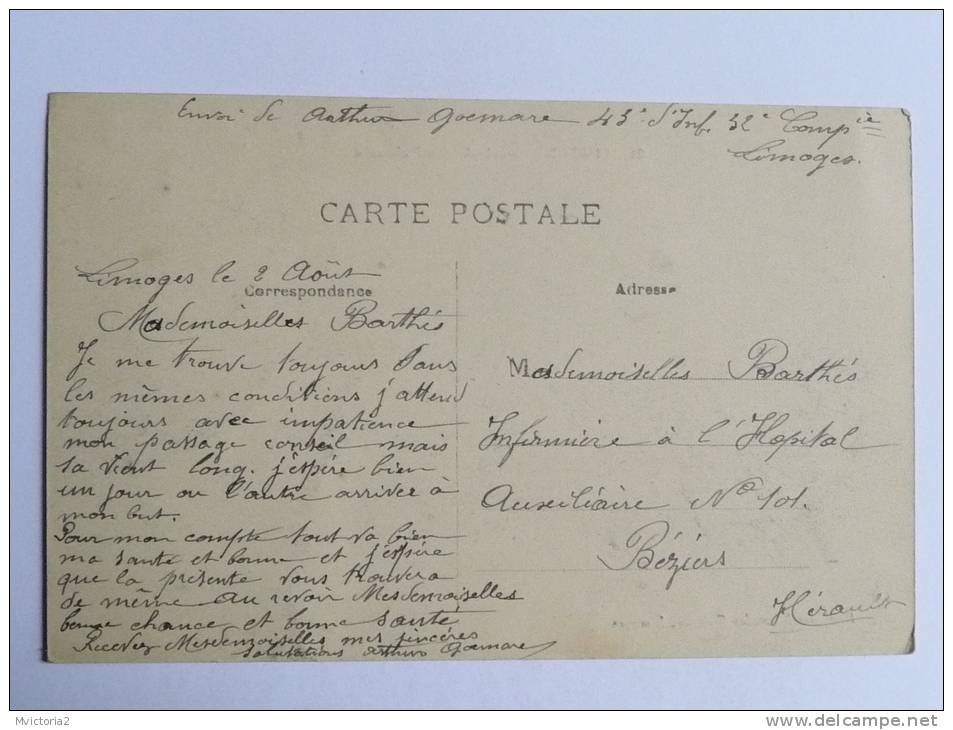 Envoi de Arthur Goemare 43e d'Inf. 32e Compie
Limoges.
CARTE POSTALE
Limoges le 2 Août
Correspondance
Mademoiselles Barthés
Je me trouve toujours dans
les mêmes conditiens j'attend
toujours avec impatience
mon passage conseil mais
sa vient long. j'espére bien
un jour ou l'autre arriver à
mon but.
Pour mon compte tout va bien
ma santé et bonne et j'espére
que la présente vous trouvera
de même au revoir Mesdemoiselles
bonne chance et bonne santé
Recevez Mesdemoiselles mes sincéres
salutations Arthur Goemare
Adresse
Mesdemoiselles Barthés
Infirmière à l'Hopital
Auxiliaire No 101.
Béziers
Hérault
Mvictoria2
www.delcampe.net